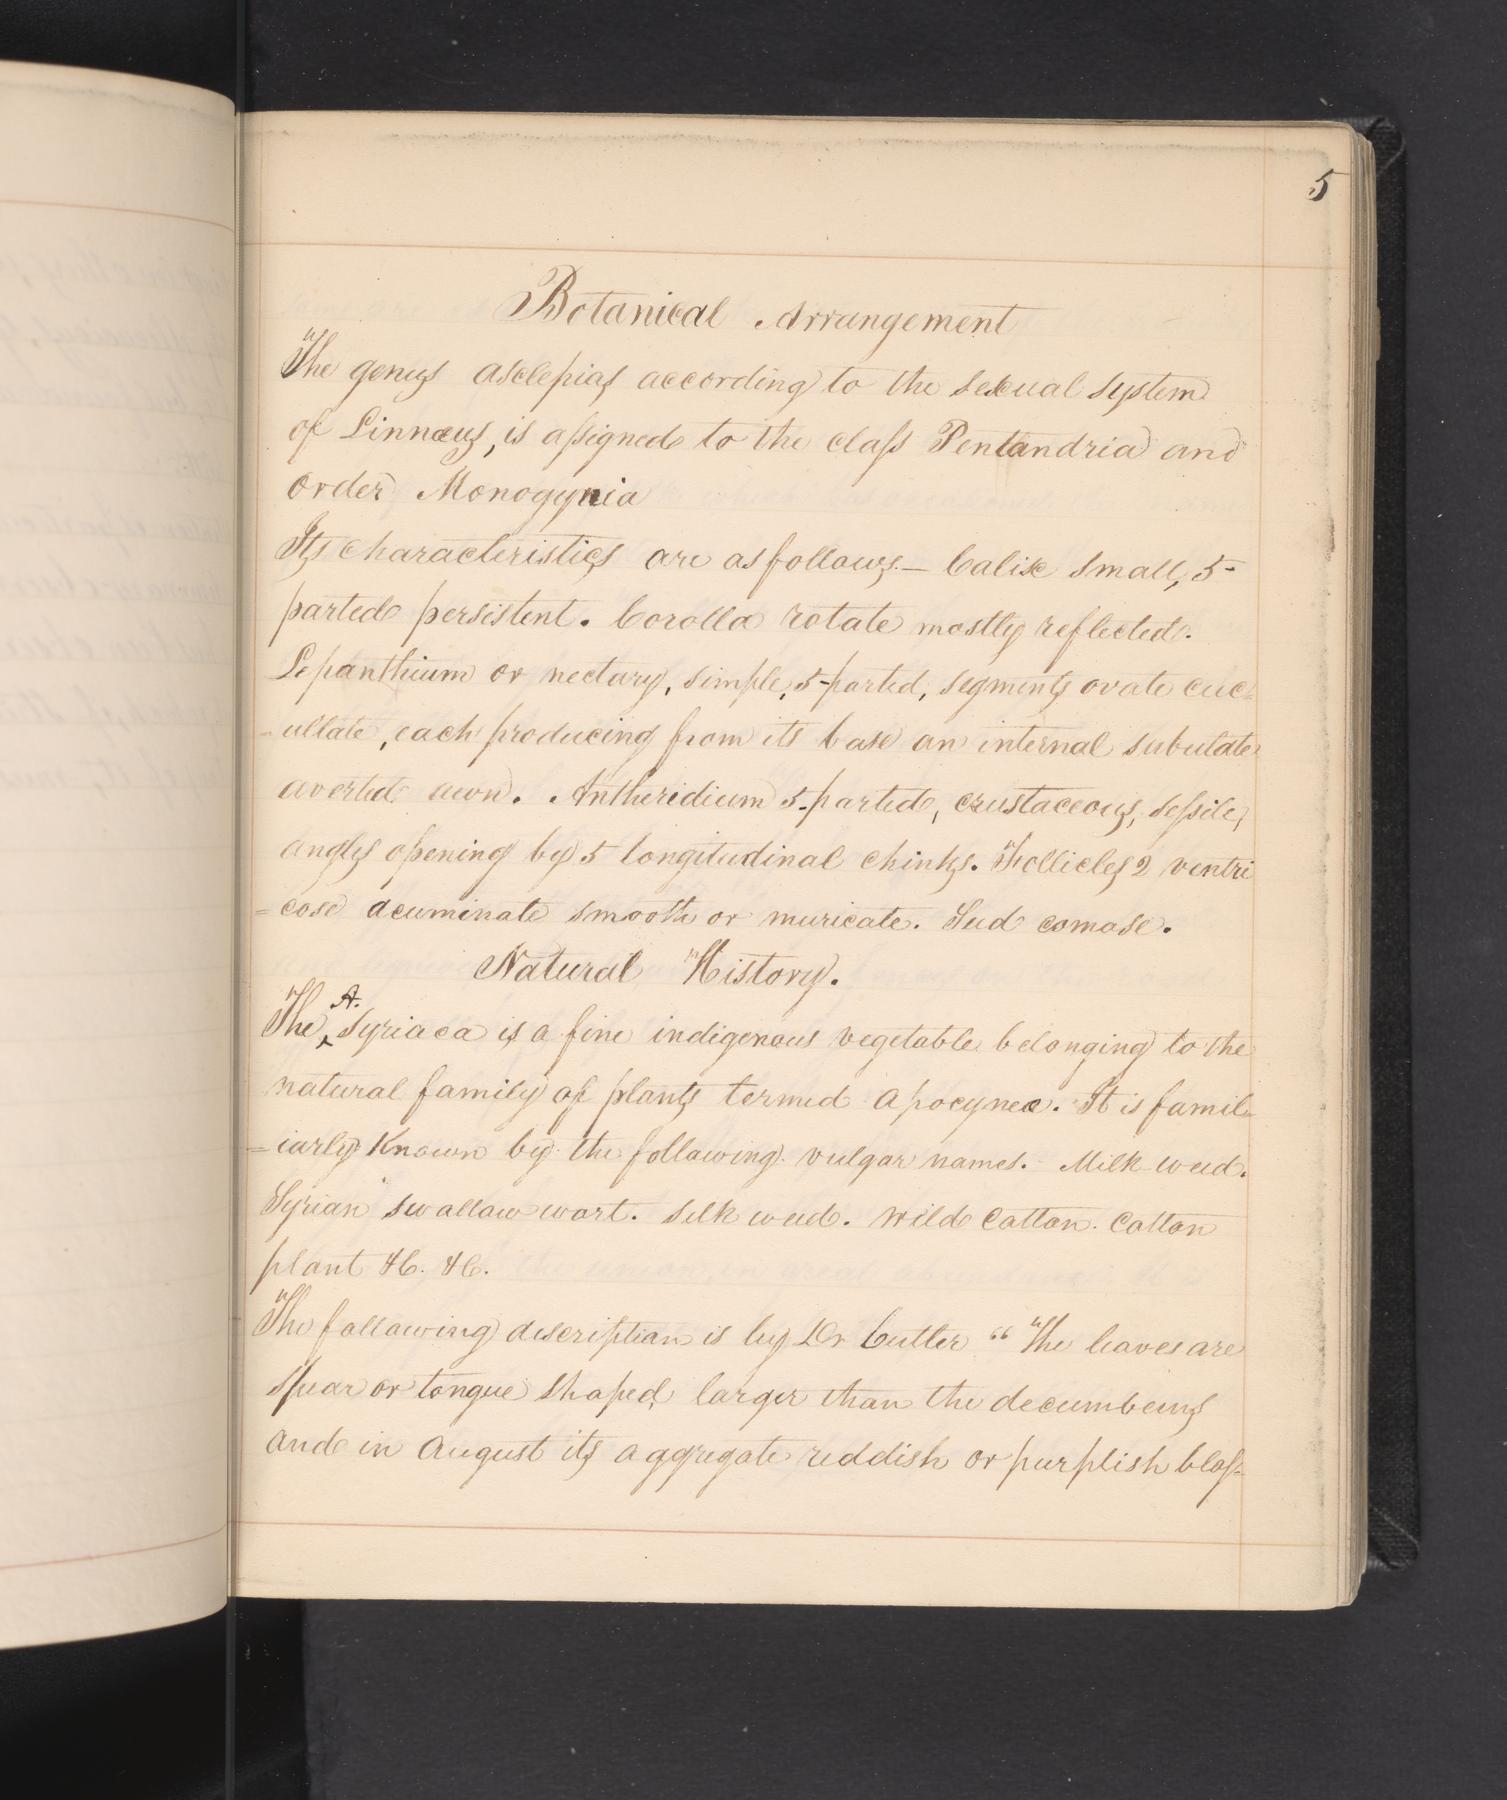 5
Botanical Arrangement
The genus asclepias according to the sexual system
of Linnæus, is assigned to the class Pentandria and
order Monogynia
Its characteristics are as follows.— Calix small, 5-
parted persistent. Corolla rotate mostly reflected.
Lepanthium or nectary, simple, 5-parted, segments ovate cuc=
=ullate, each producing from its base an internal subulate
averted awn. Antheridium 5-parted, crustaceous, sessile,
angles opening by 5 longitudinal chinks. Follicles 2 ventri
=cose acuminate smooth or muricate. Seed comose.
Natural History.
The A. Syriaca is a fine indigenous vegetable belonging to the
natural family of plants termed Apocyneæ. It is famil=
=iarly known by the following vulgar names. Milk-weed.
Syrian swallow wort. Silk weed. Wild Cotton. Cotton
plant &c. &c.
The following description is by Dr Cutler “The leaves are
spear or tongue shaped, larger than the decumbens
and in August its aggregate reddish or purplish blos=